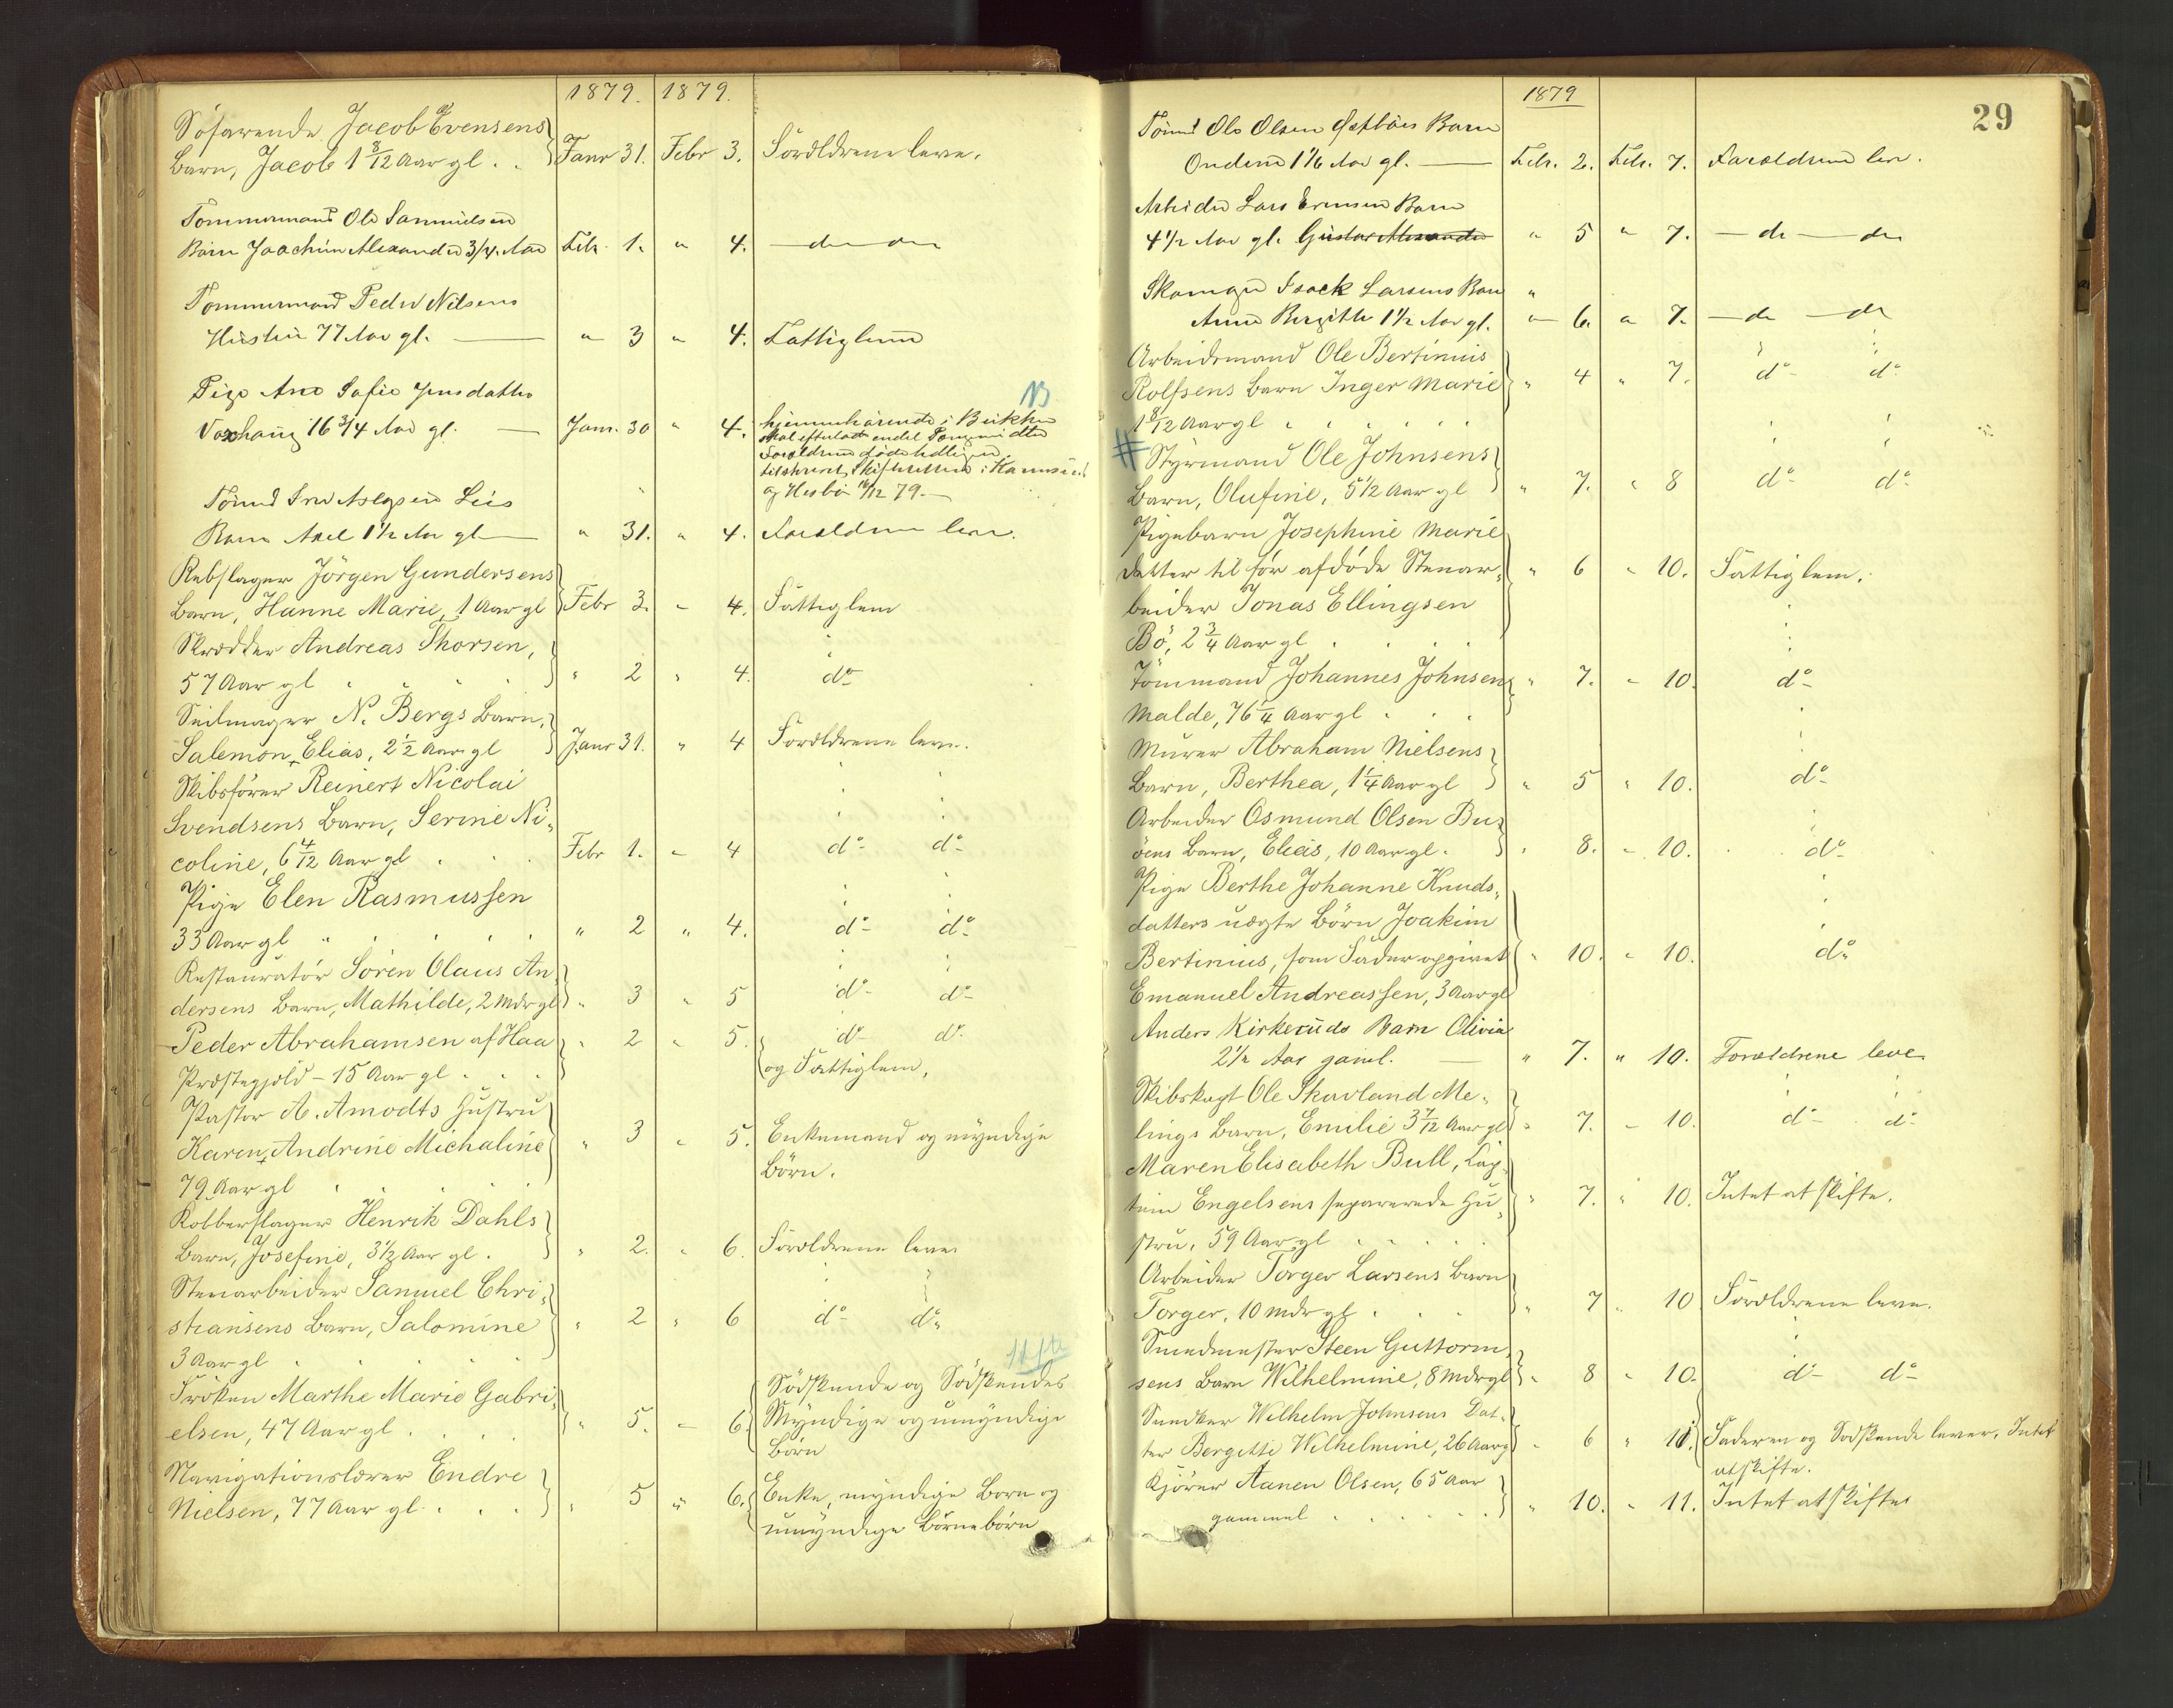 1879. 1879.
Søfarende Jacob Evensens
Barn, Jacob 1 8/12 Aar gl. Janr 31. Febr 3. Forældrene leve.
Tømmermand Ole Samuelsen
Barn Joachim Alexander 3/4 Aar Feb. 1. " 4. do do
Tømmermand Peder Nilsens
Hustru 77 Aar gl. " 3 " 4. Fattiglem
NB
Pige Ane Sofie Jensdatter
16 3/4 Aar gl. Janr. 30 " 4. hjemmehørende i
og 16/12 79.
Barn Axel 1 1/2 Aar gl " 31. " 4. Forældrene leve.
Rebslager Jörgen Gundersens
Barn, Hanne Marie, 1 Aar gl Febr 3. " 4. Fattiglem
Skrædder Andreas Thorsen,
57 Aar gl " 2 " 4. do
Seilmager N. Bergs Barn,
Salemon Elias, 2 1/2 Aar gl Janr 31. " 4 Forældrene leve.
Skibsfører Reinert Nicolai
Svendsens Barn, Serine Ni-
coline, 6 4/12 Aar gl Febr 1. " 4 do do
Pige Elen Rasmussen
33 Aar gl " 2 " 4. do do
Restauratør Sören Olaus An-
dersens Barn, Mathilde, 2 Mdr gl " 3 " 5 do do
Peder Abrahamsen af Haa " 2 " 5. do do
Præstegjeld - 15 Aar gl og Fattiglem.
Pastor A. Amodts Hustru
Karen Andrine Michaline " 3 " 5. Enkemand og myndige
79 Aar gl Börn.
Kobberslager Henrik Dahls
Barn, Josefine, 3 1/2 Aar gl. " 2. " 6. Forældrene leve
Stenarbeider Samuel Chri-
stiansens Barn, Salomine " 2 " 6 do do
3 Aar gl
Fröken Marthe Marie Gabri- Södskende og Södskendes
elsen, 47 Aar gl " 5. " 6. Myndige og umyndige
Börn
Navigationslærer Endre
Nielsen, 77 Aar gl. " 5 " 6. Enke, myndige Börn og
umyndige Börnebörn
29
1879
Ole Olsen Barn
1 1/6 Aar gl. Feb. 2. Feb. 7. Forældrene leve.
Arbeider Lars Evensen Barn
4 1/2 Aar gl. Gustav Alexander " 5 " 7. do do
Skomager Isack Larsens Barn "
Anne Bergitte 1 1/2 Aar gl. " 6. " 7. do do
Arbeidsmand Ole Bertinius
Rolfsens Barn Inger Marie " 4 " 7. do do
1 8/12 Aar gl
# Styrmand Ole Johnsens
Barn, Olufine, 5 1/2 Aar gl " 7. " 8 do do
Pigebarn Josephine Marie
Datter til før afdöde Stenar- " 6 " 10. Fattiglem.
beider Jonas Ellingsen
Bö, 2 3/4 Aar gl
Tömmand Johannes Johnsen " 7. " 10. do
Malde, 76 1/4 Aar gl
Murer Abraham Nielsens
Barn, Berthea, 1 1/4 Aar gl " 5 " 10. do
Arbeider Osmund Olsen Bu-
öens Barn, Elias, 10 Aar gl. " 8. " 10. do
Pige Berthe Johanne Knuds-
datters uægte Börn Joakim
Bertinius, som Fader opgivet " 10. " 10. do
Emanuel Andreassen, 3 Aar gl
Anders Kirkeruds Barn Olivia
2 1/2 Aar gaml. " 7. " 10. Forældrene leve
Skibskapt Ole Skavland Me-
lings Barn, Emilie 3 7/12 Aar gl " 7. " 10. do do
Maren Elisabeth Bull, Kap-
tein Engelsens separerede Hu- " 7. " 10. Intet at skifte.
stru, 59 Aar gl
Arbeider Torger Larsens Barn
Torger, 10 Mdr gl " 7 " 10 Forældrene leve.
Smedmester Steen Guttorm-
sens Barn Wilhelmine, 8 Mdr gl " 8 " 10. do do
Snedker Wilhelm Johnsens Dat-
ter Bergitte Wilhelmine, 26 Aar gl " 6 " 11. Faderen og Södskende lever. Intet
at skifte.
Kjörer Aanen Olsen, 65 Aar
gammel " 10. " 11. Intet at skifte